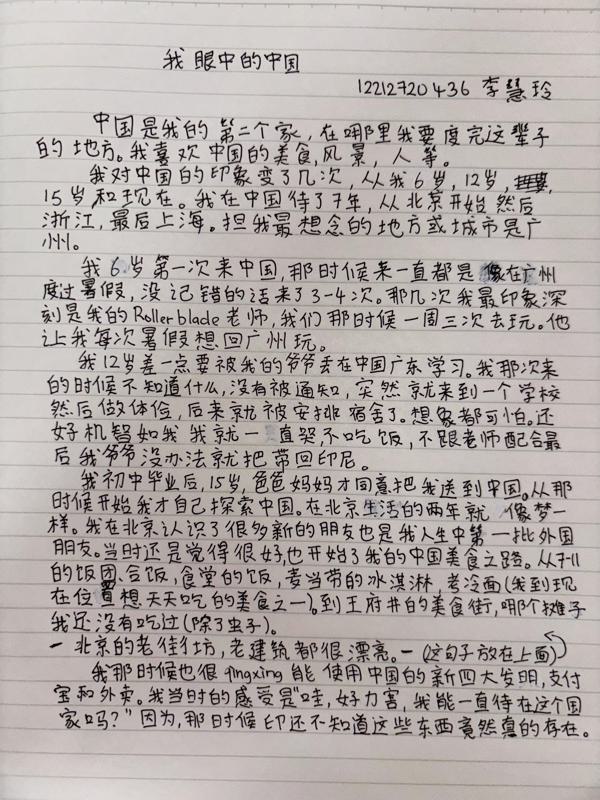 我眼中的中国
12212720436 李慧玲
中国是我的第二个家，在哪里我要度完这辈子
的地方。我喜欢中国的美食，风景，人等。
我对中国的印象变了几次，从我6岁，12岁，
15岁，和现在。我在中国待了7年，从北京开始然后
浙江，最后上海。担我最想念的地方或城市是广
州。
我6岁第一次来中国，那时候来一直都是像在广州
度过暑假，没记错的话来了3-4次。那几次我最印象深
刻是我的Rollerblade老师，我们那时候一周三次去玩。他
让我每次暑假想回广州玩。
我12岁差一点要被我的爷爷丢在中国广东学习。我那次来
的时候不知道什么，没有被通知，突然就来到一个学校
然后做体俭，后来就被安排宿舍了。想象都可怕。还
好机智如我我就一直哭不吃饭，不跟老师配合最
后我爷爷没办法就把带回印尼。
我初中毕业后，15岁，爸爸妈妈才同意把我送到中国。从那
时候开始我才自己探索中国。在北京生活的两年就像梦一
样。我在北京认识了很多新的朋友也是我人生中第一批外国
朋友。当时还是觉得很好，也开始了我的中国美食之路。从7-11
的饭团、合饭，食堂的饭，麦当带的冰淇淋，考冷面(我到现
在位置想天天吃的美食之一)。到王府井的美食街，哪个摊子
我还没有吃过(除了虫子)。
一北京的老街坊，老建筑都很漂亮。一(这句子放在上面)
我那时候也很qingxing能使用中国的新四大发明，支付
宝和外卖。我当时的感受是“哇，好力害，我能一直待在这个国
家吗？”因为，那时候印还不知道这些东西竟然真的存在。